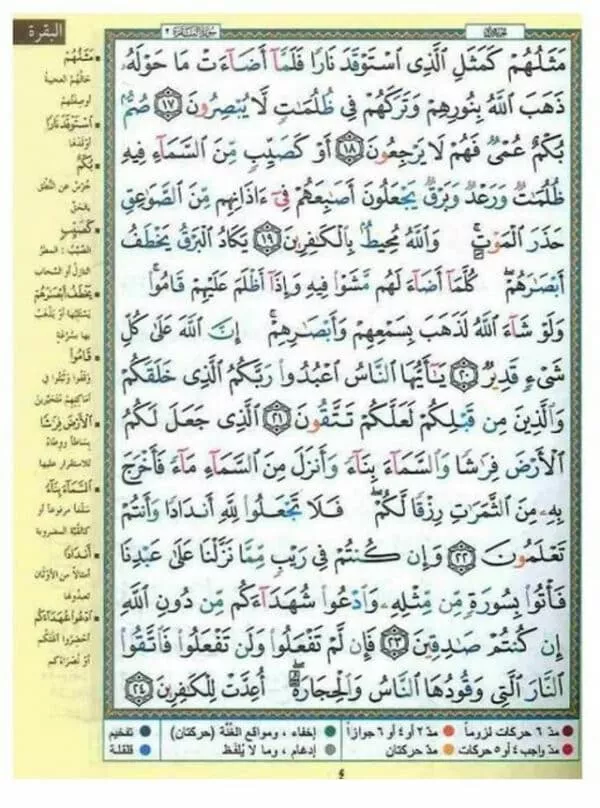 البقرة
سورة البقرة ٢
مَثَلُهُمْ كَمَثَلِ ٱلَّذِى ٱسْتَوْقَدَ نَارًا فَلَمَّآ أَضَآءَتْ مَا حَوْلَهُۥ
ذَهَبَ ٱللَّهُ بِنُورِهِمْ وَتَرَكَهُمْ فِى ظُلُمَٰتٍ لَّا يُبْصِرُونَ ١٧ صُمٌّۢ
بُكْمٌ عُمْىٌ فَهُمْ لَا يَرْجِعُونَ ١٨ أَوْ كَصَيِّبٍ مِّنَ ٱلسَّمَآءِ فِيهِ
ظُلُمَٰتٌ وَرَعْدٌ وَبَرْقٌ يَجْعَلُونَ أَصَٰبِعَهُمْ فِىٓ ءَاذَانِهِم مِّنَ ٱلصَّوَٰعِقِ
حَذَرَ ٱلْمَوْتِ ۚ وَٱللَّهُ مُحِيطٌۢ بِٱلْكَٰفِرِينَ ١٩ يَكَادُ ٱلْبَرْقُ يَخْطَفُ
أَبْصَٰرَهُمْ ۖ كُلَّمَآ أَضَآءَ لَهُم مَّشَوْا۟ فِيهِ وَإِذَآ أَظْلَمَ عَلَيْهِمْ قَامُوا۟ ۚ
وَلَوْ شَآءَ ٱللَّهُ لَذَهَبَ بِسَمْعِهِمْ وَأَبْصَٰرِهِمْ ۚ إِنَّ ٱللَّهَ عَلَىٰ كُلِّ
شَىْءٍ قَدِيرٌ ٢٠ يَٰٓأَيُّهَا ٱلنَّاسُ ٱعْبُدُوا۟ رَبَّكُمُ ٱلَّذِى خَلَقَكُمْ
وَٱلَّذِينَ مِن قَبْلِكُمْ لَعَلَّكُمْ تَتَّقُونَ ٢١ ٱلَّذِى جَعَلَ لَكُمُ
ٱلْأَرْضَ فِرَٰشًا وَٱلسَّمَآءَ بِنَآءً وَأَنزَلَ مِنَ ٱلسَّمَآءِ مَآءً فَأَخْرَجَ
بِهِۦ مِنَ ٱلثَّمَرَٰتِ رِزْقًا لَّكُمْ ۖ فَلَا تَجْعَلُوا۟ لِلَّهِ أَندَادًا وَأَنتُمْ
تَعْلَمُونَ ٢٢ وَإِن كُنتُمْ فِى رَيْبٍ مِّمَّا نَزَّلْنَا عَلَىٰ عَبْدِنَا
فَأْتُوا۟ بِسُورَةٍ مِّن مِّثْلِهِۦ وَٱدْعُوا۟ شُهَدَآءَكُم مِّن دُونِ ٱللَّهِ
إِن كُنتُمْ صَٰدِقِينَ ٢٣ فَإِن لَّمْ تَفْعَلُوا۟ وَلَن تَفْعَلُوا۟ فَٱتَّقُوا۟
ٱلنَّارَ ٱلَّتِى وَقُودُهَا ٱلنَّاسُ وَٱلْحِجَارَةُ ۖ أُعِدَّتْ لِلْكَٰفِرِينَ ٢٤
مَثَلُهُمْ
حالُهُمُ العجيبة
أو صِفَتُهُمْ
ٱسْتَوْقَدَ نَارًا
أوْقَدَهَا
بُكْمٌ
خُرْسٌ عن النُّطْقِ
بالحَقِّ
كَصَيِّبٍ
الصَّيِّبُ : المطرُ
النازلُ أو السَّحاب
يَخْطَفُ أَبْصَٰرَهُمْ
يَسْتَلِبُهَا أو يَذْهَبُ
بها بسُرْعَةٍ
قَامُوا۟
وَقَفُوا وَثَبَتُوا في
أماكِنِهِم مُتَحَيِّرين
ٱلْأَرْضَ فِرَٰشًا
بِسَاطًا وَوِطَاءً
للاستقرار عليها
ٱلسَّمَآءَ بِنَآءً
سَقْفًا مرفوعًا أو
كالقُبَّةِ المضروبة
أَندَادًا
أمثالاً من الأوْثَان
تعبدُونها
ٱدْعُوا۟ شُهَدَآءَكُم
أحْضِرُوا آلهتَكُم
أو نُصَرَاءَكم
مدّ ٦ حركات لزوماً مدّ ٢ أو ٤ أو ٦ جوازاً إخفاء ، ومواقع الغُنَّة (حركتان) تفخيم
مدّ واجب ٤ أو ٥ حركات مدّ حركتان إدغام ، وما لا يُلفَظ قلقلة
٤